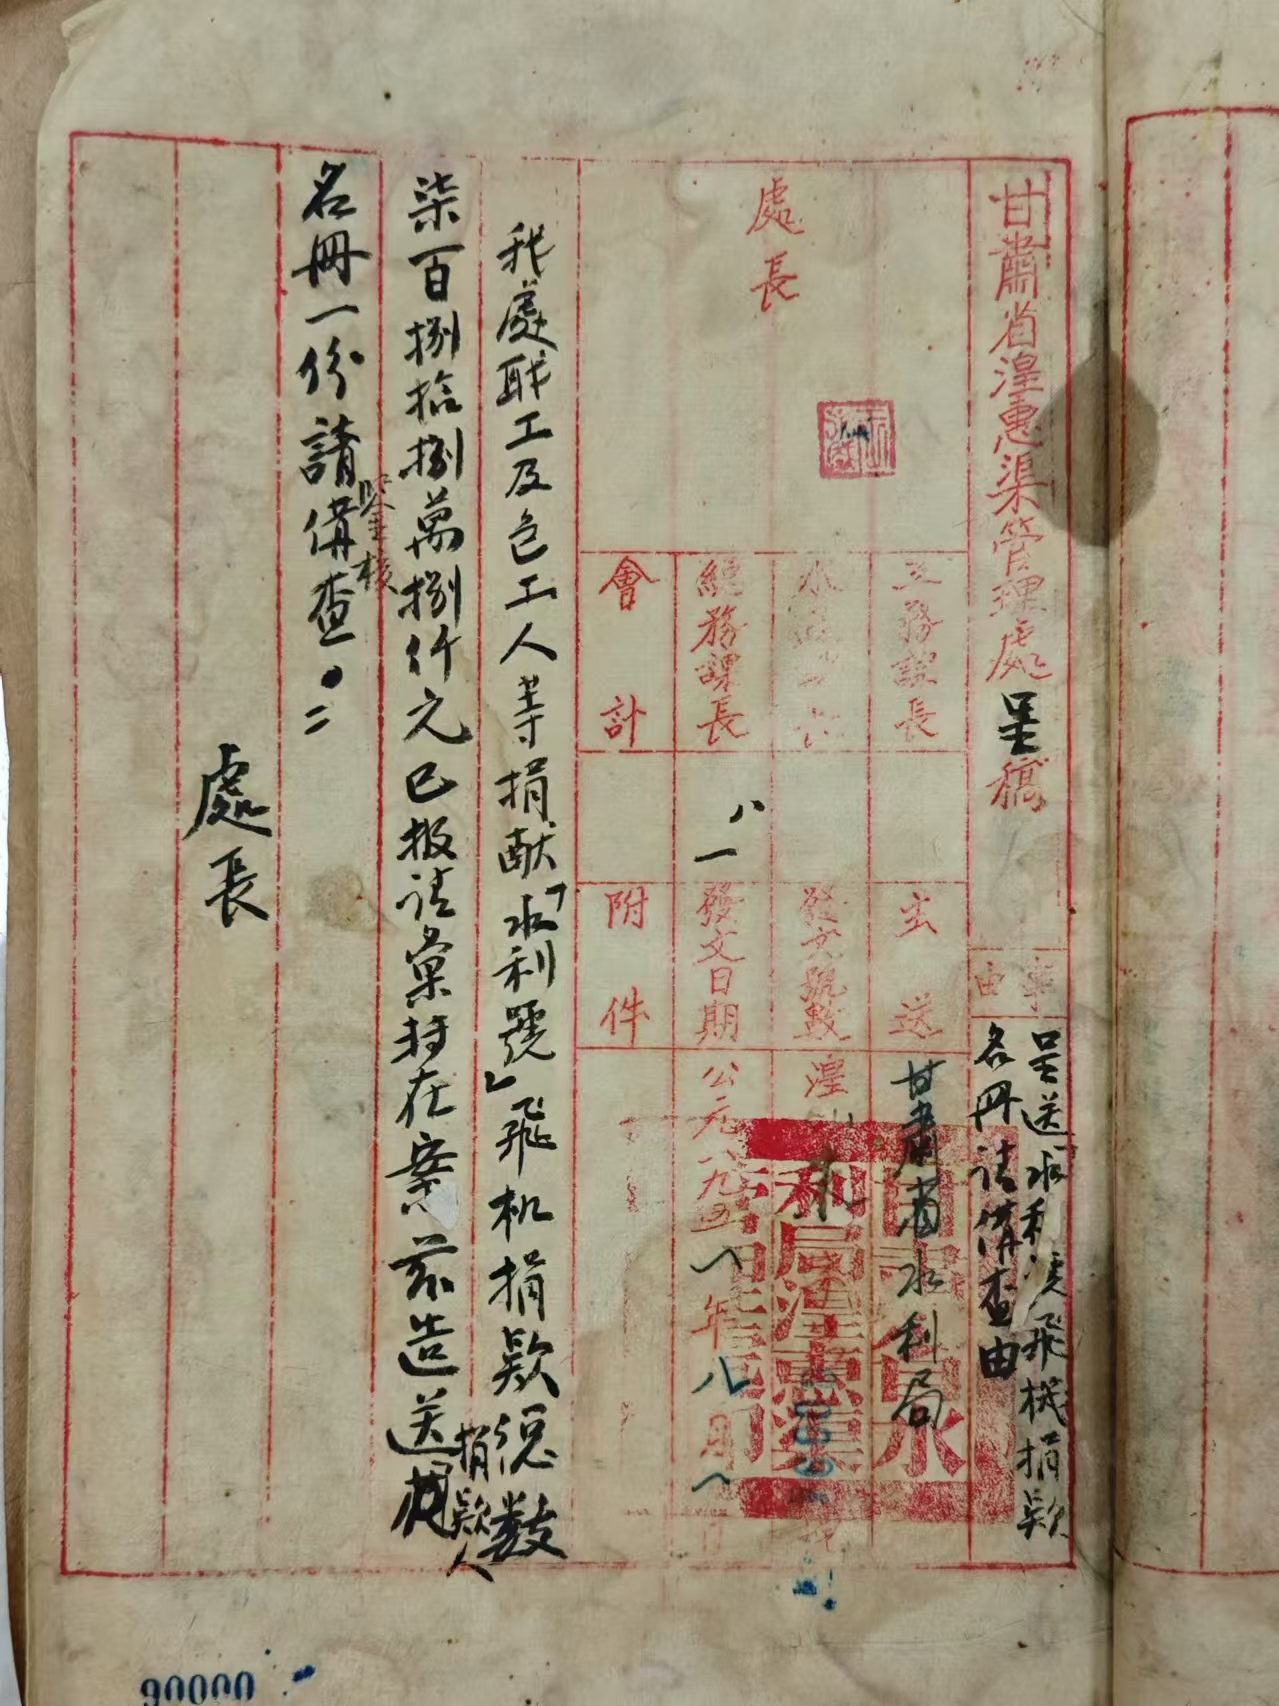 甘肅省湟惠渠管理處呈稿
事由
呈送「水利號飛機捐款
名冊請備查由
處長
工務課長
總務課長
會計
主送
甘肅省水利局
發文號數
湟
發文日期
公元一九五一年八月一日
附件
八
一
我處职工及包工人等捐献「水利號」飛机捐款總数
柒百捌拾捌萬捌仟元已报请彙轉在案兹造送捐款人
名冊一份請備查。二
鑒核
處長
90000